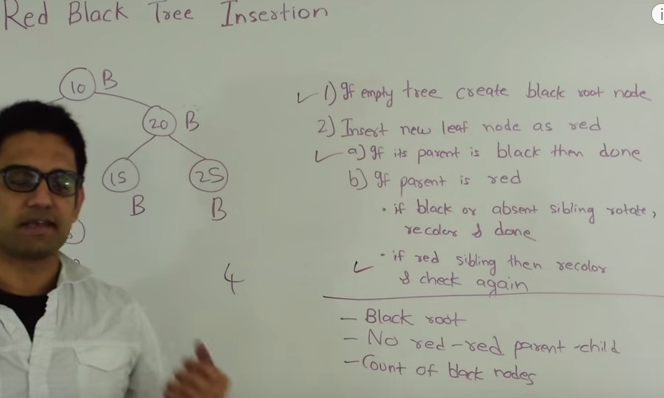 Red Black Tree Insertion
10 B
20 B
15
25
B
B
4
1) If empty tree create black root node
2) Insert new leaf node as red
a) If its parent is black then done
b) If parent is red
· if black or absent sibling rotate,
recolor & done
· if red sibling then recolor
& check again
- Black root
- No red-red parent-child
- Count of black nodes